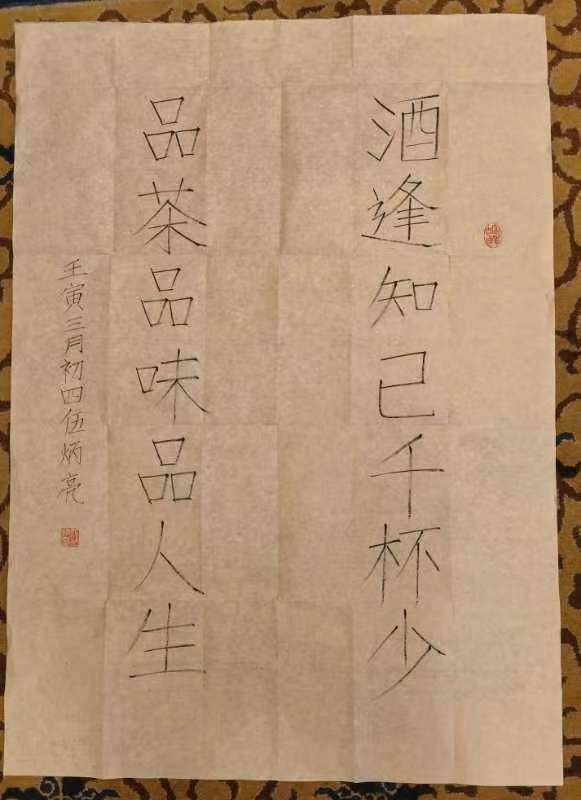 酒逢知己千杯少
品茶品味品人生
壬寅三月初四伍炳亮